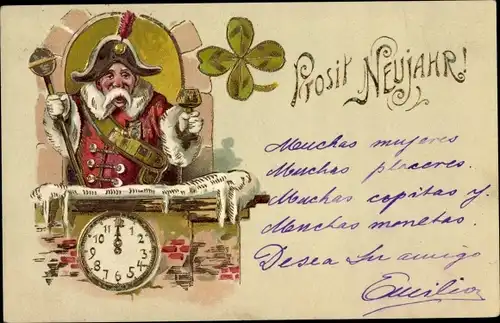 Prosit Neujahr!
Muchas mujeres
Muchos placeres.
Muchas copitas y.
Muchas monetas.
Desea Su amigo
Emilio
12
1
2
3
4
5
6
7
8
9
10
11